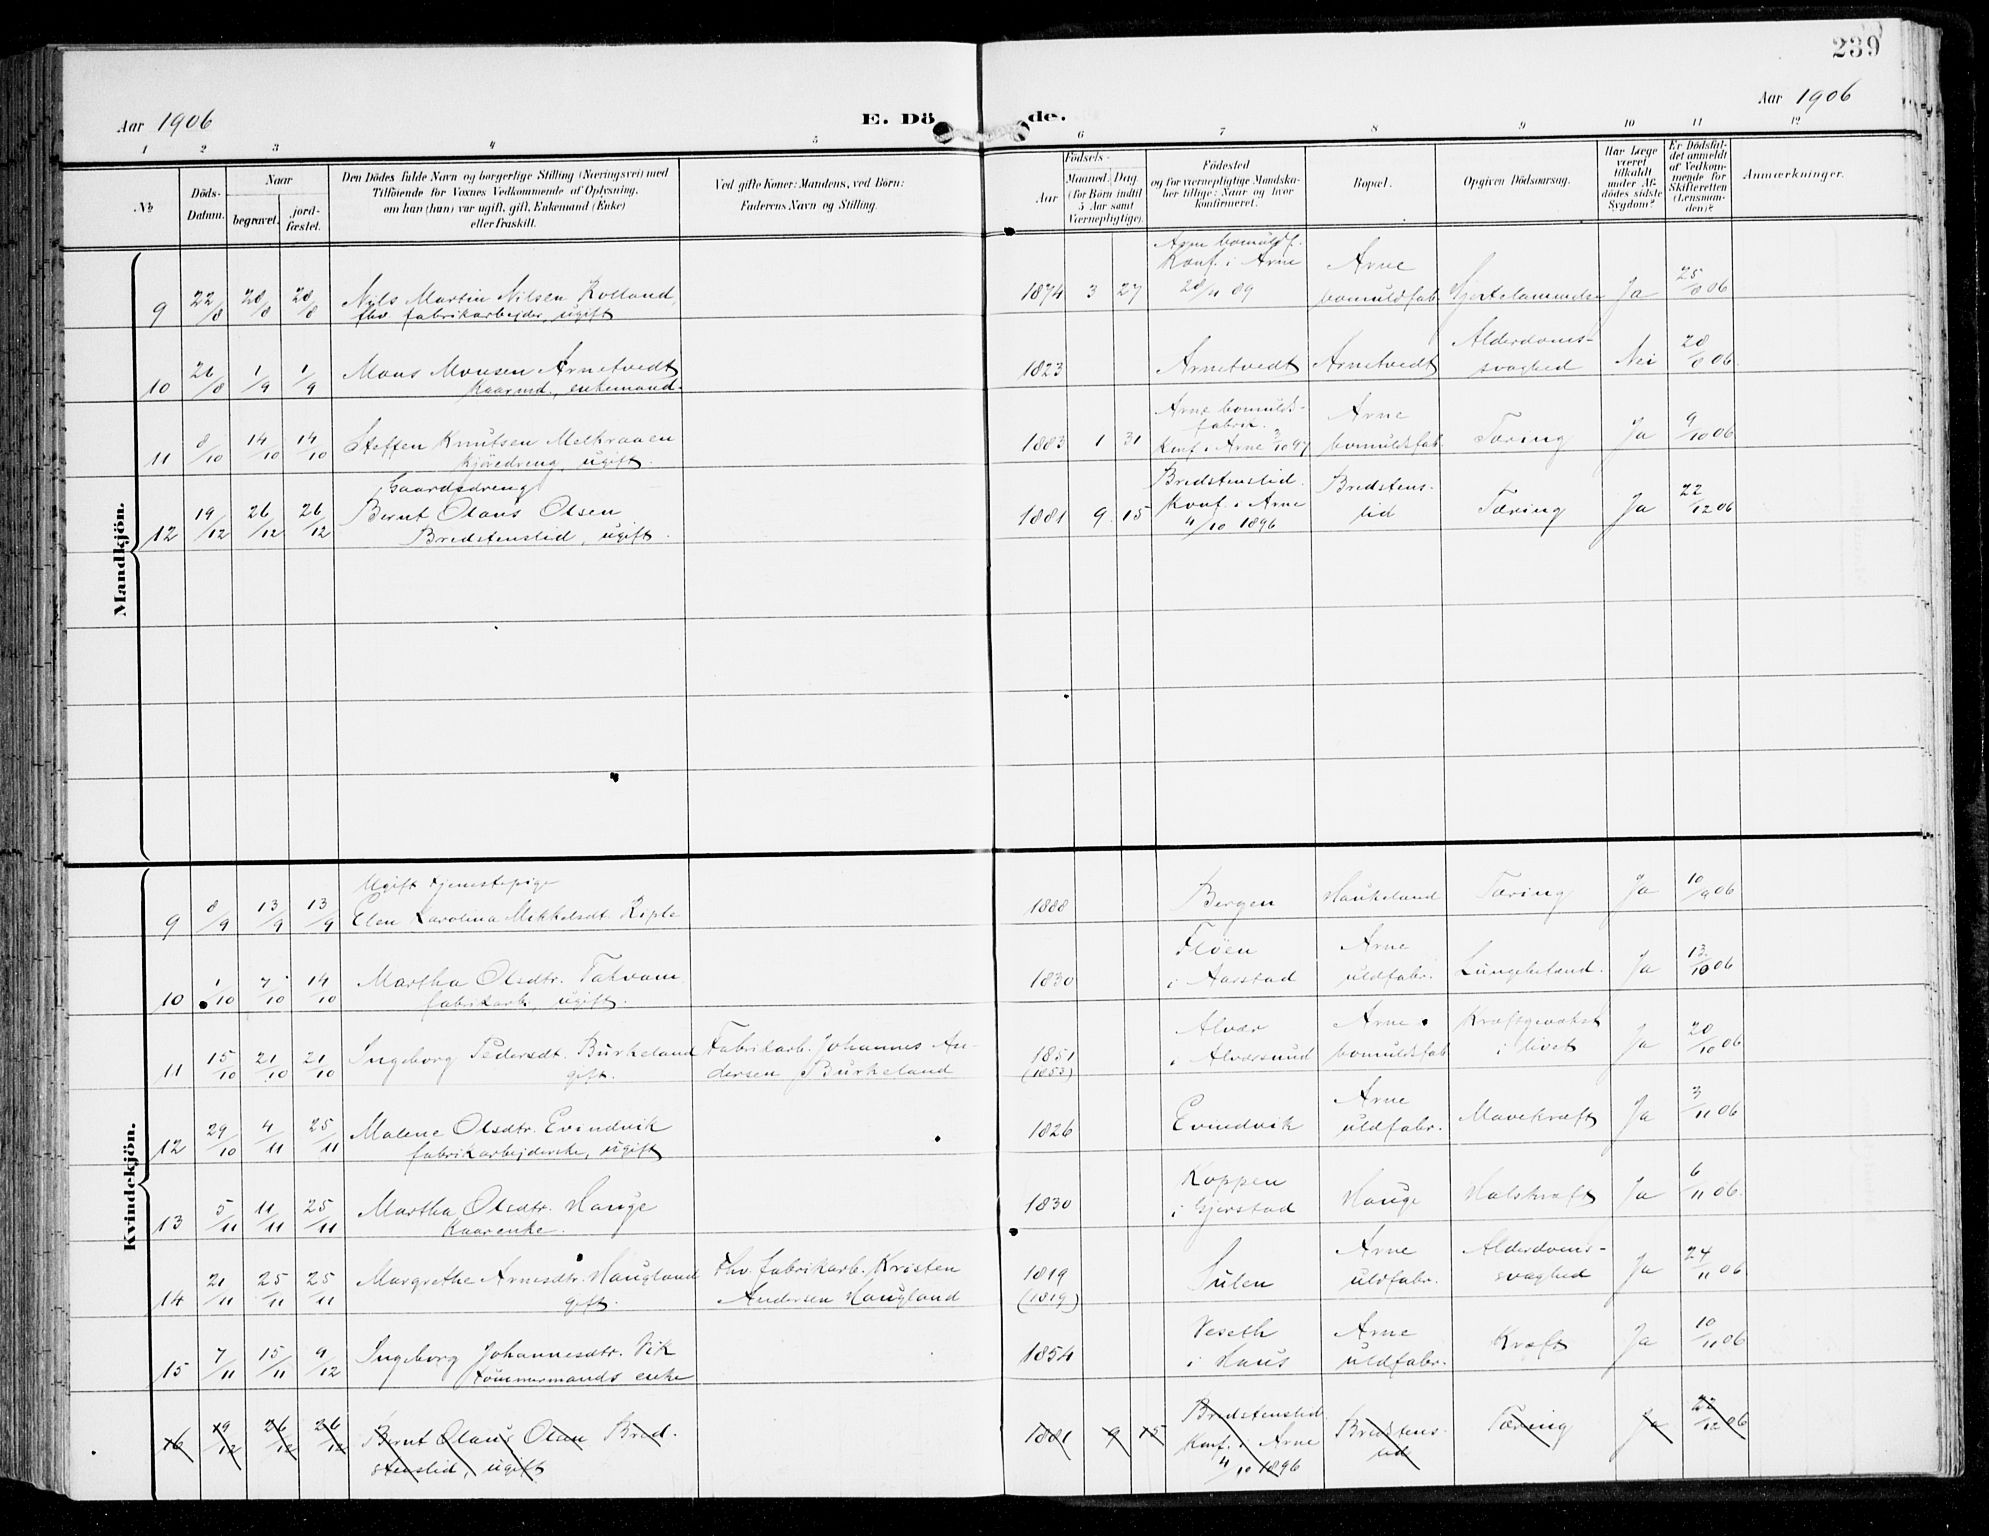 239
Aar 1906
E. Dö de.
Aar 1906
1 2 3 4 5 6 7 8 9 10 11 12
№
Döds-Datum.
Naar
begravet.
jord-fæstet.
Den Dödes fulde Navn og borgerlige Stilling (Næringsvei) med
Tilföiende for Voxnes Vedkommende af Oplysning,
om han (hun) var ugift, gift, Enkemand (Enke)
eller fraskilt.
Ved gifte Koner: Mandens, ved Börn:
Faderens Navn og Stilling.
Födsels-
Aar
Maaned. Dag.
(for Börn indtil
5 Aar samt
Værnepligtige).
Födested
og for værnepligtige Mandska-
ber tillige: Naar og hvor
konfirmeret.
Bopæl.
Opgiven Dödsaarsag.
Har Læge
været
tilkaldt
under Af-
dödes sidste
Sygdom?
Er Dödsfal-
det anmeldt
af Vedkom-
mende for
Skifteretten
(Lensman-
den)?
Anmærkninger.
Mandkjön.
9 22/8 28/8 28/8 Nils Martin Nilsen Rolland, fhv fabrikarbejder, ugift 1874 3 27 Arne bomuldf. Konf. i Arne 89 Arne bomuldfab. Ja 25/8 06
10 /8 1/9 1/9 Mons Monsen Arnetvedt Kaarmd., enkemand. 1823 Arnetvedt Arnetvedt Alderdoms-svaghed Nei 28/8 06
11 8/10 14/10 14/10 Steffen Knutsen Melkraaen kjøredreng, ugift. 1883 1 31 Arne bomulds-fabrik. Konf. i Arne 3/10 97 Arne bomuldsfab. Tæring Ja 9/10 06
12 19/12 26/12 26/12 Gaardsdreng Bernt Olaus Olsen Bredstenslid, ugift. 1881 9 15 Bredstenslid. Konf. i Arne 4/10 1896 Bredstens-lid Tæring Ja 22/12 06
Kvindekjön.
9 8/9 13/9 13/9 Ugift tjenestepige Elen Karolina Mikkelsdt. Riple 1888 Bergen Haukeland Tæring Ja 10/9 06
10 1/10 7/10 14/10 Martha Olsdtr. Takvam fabrikarb., ugift. 1830 Fløen i Aarstad Arne uldfabr. Lungebetænd. Ja 13/10 06
11 15/10 21/10 21/10 Ingeborg Pedersdt. Burkeland gift. Fabrikarb. Johannes An-dersen Burkeland 1851 (1853) Alvær i Alversund Arne bomuldsfab Kræftgevækst i livet Ja 20/10 06
12 29/10 4/11 25/11 Malene Olsdtr. Evindvik fabrikarbejderske, ugift 1826 Evindvik Arne uldfabr. Mavekræft Ja 3/11 06
13 5/11 11/11 25/11 Martha Olsdtr. Hauge Kaarenke. 1830 Koppen i Gjerstad Hauge Halskræft Ja 6/11 06.
14 21/11 25/11 25/11 Margrethe Arnesdtr. Haugland gift. Fhv. fabrikarb. Kristen Andersen Haugland 1819 (1819) Sulen Arne uldfabr. Alderdoms-svaghed Ja 24/11 06
15 7/11 15/11 9/12 Ingeborg Johannesdtr. Vik tömmermands enke 1854 Veseth i Haus Arne uldfabr. Kræft Ja 10/11 06
16 19/12 26/12 26/12 Bernt Olaus Olsen Bred-stenslid, ugift 1881 9 15 Bredstenslid. Konf. i Arne 4/10 1896 Bredstens-lid Tæring Ja 22/12 06